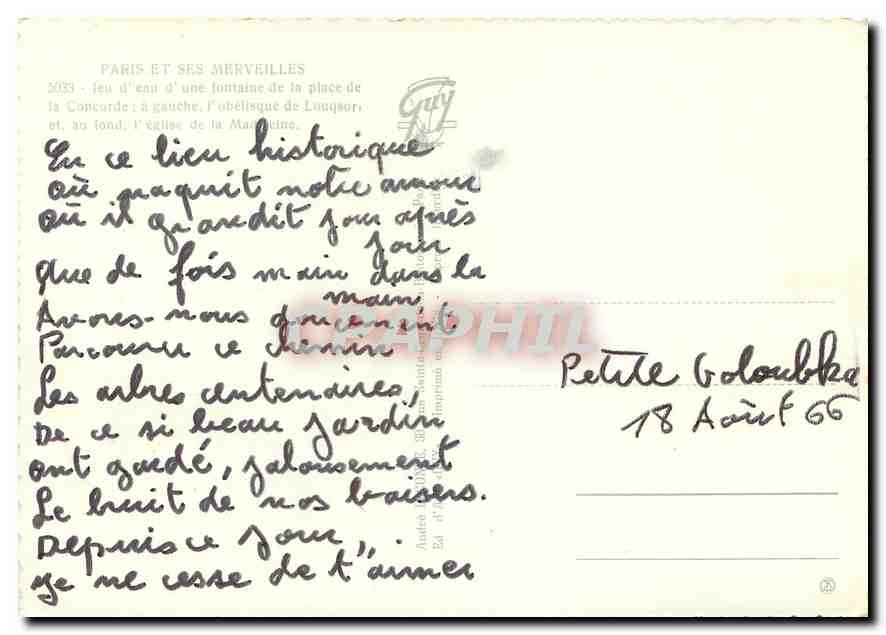 PARIS ET SES MERVEILLES
5033 - Jeu d'eau d'une fontaine de la place de
la Concorde; à gauche, l'obélisque de Louqsor;
et, au fond, l'église de la Madeleine.
Guy
En ce lieu historique
où naquit notre amour
où il grandit jour après
jour
que de fois main dans la
main
Avons-nous doucement
Parcouru ce chemin
Les arbres centenaires,
De ce si beau jardin
ont gardé, jalousement
Le bruit de nos baisers.
Depuis ce jour,, .
je ne cesse de t'aimer
Petite Goloubka
18 Août 66
CPAPHIL
André LECONTE
Imprimé en